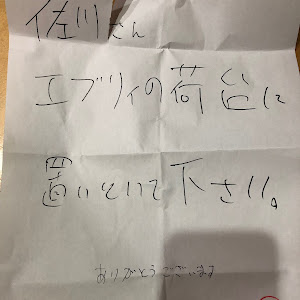 佐川さん
エブリィの荷台に
置いといて下さい。
ありがとうございます